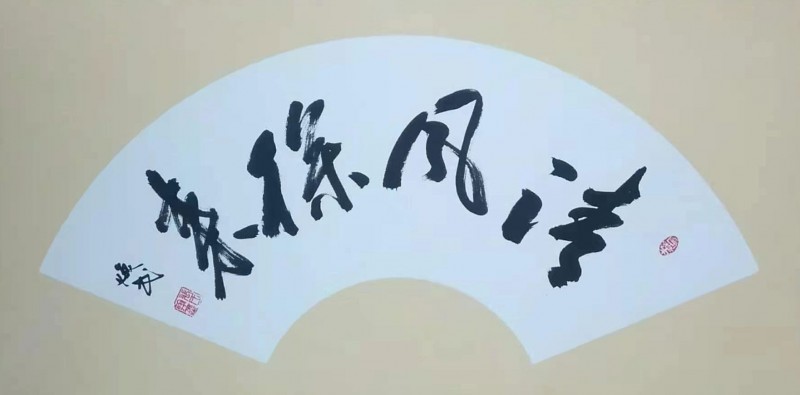 清风徐来